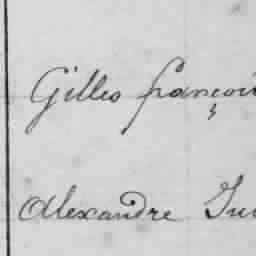 Gilles françoi
Alexandre